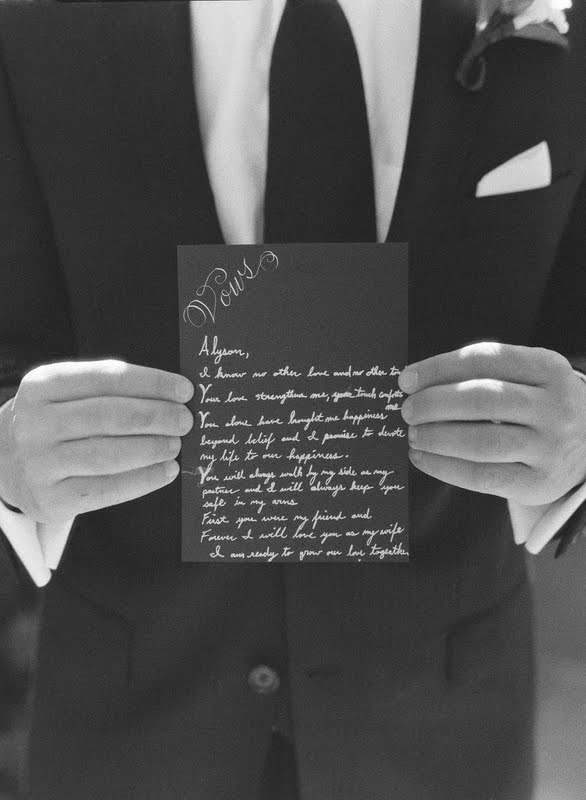 Vows
Alyson,
I know no other love and no other
Your love strengthens me, your touch comforts
me
You alone have brought me happiness
beyond belief and I promise to devote
my life to our happiness.
You will always walk by my side as my
partner and I will always keep you
safe in my arms
First you were my friend and
Forever I will love you as my wife
I am ready to grow our love together